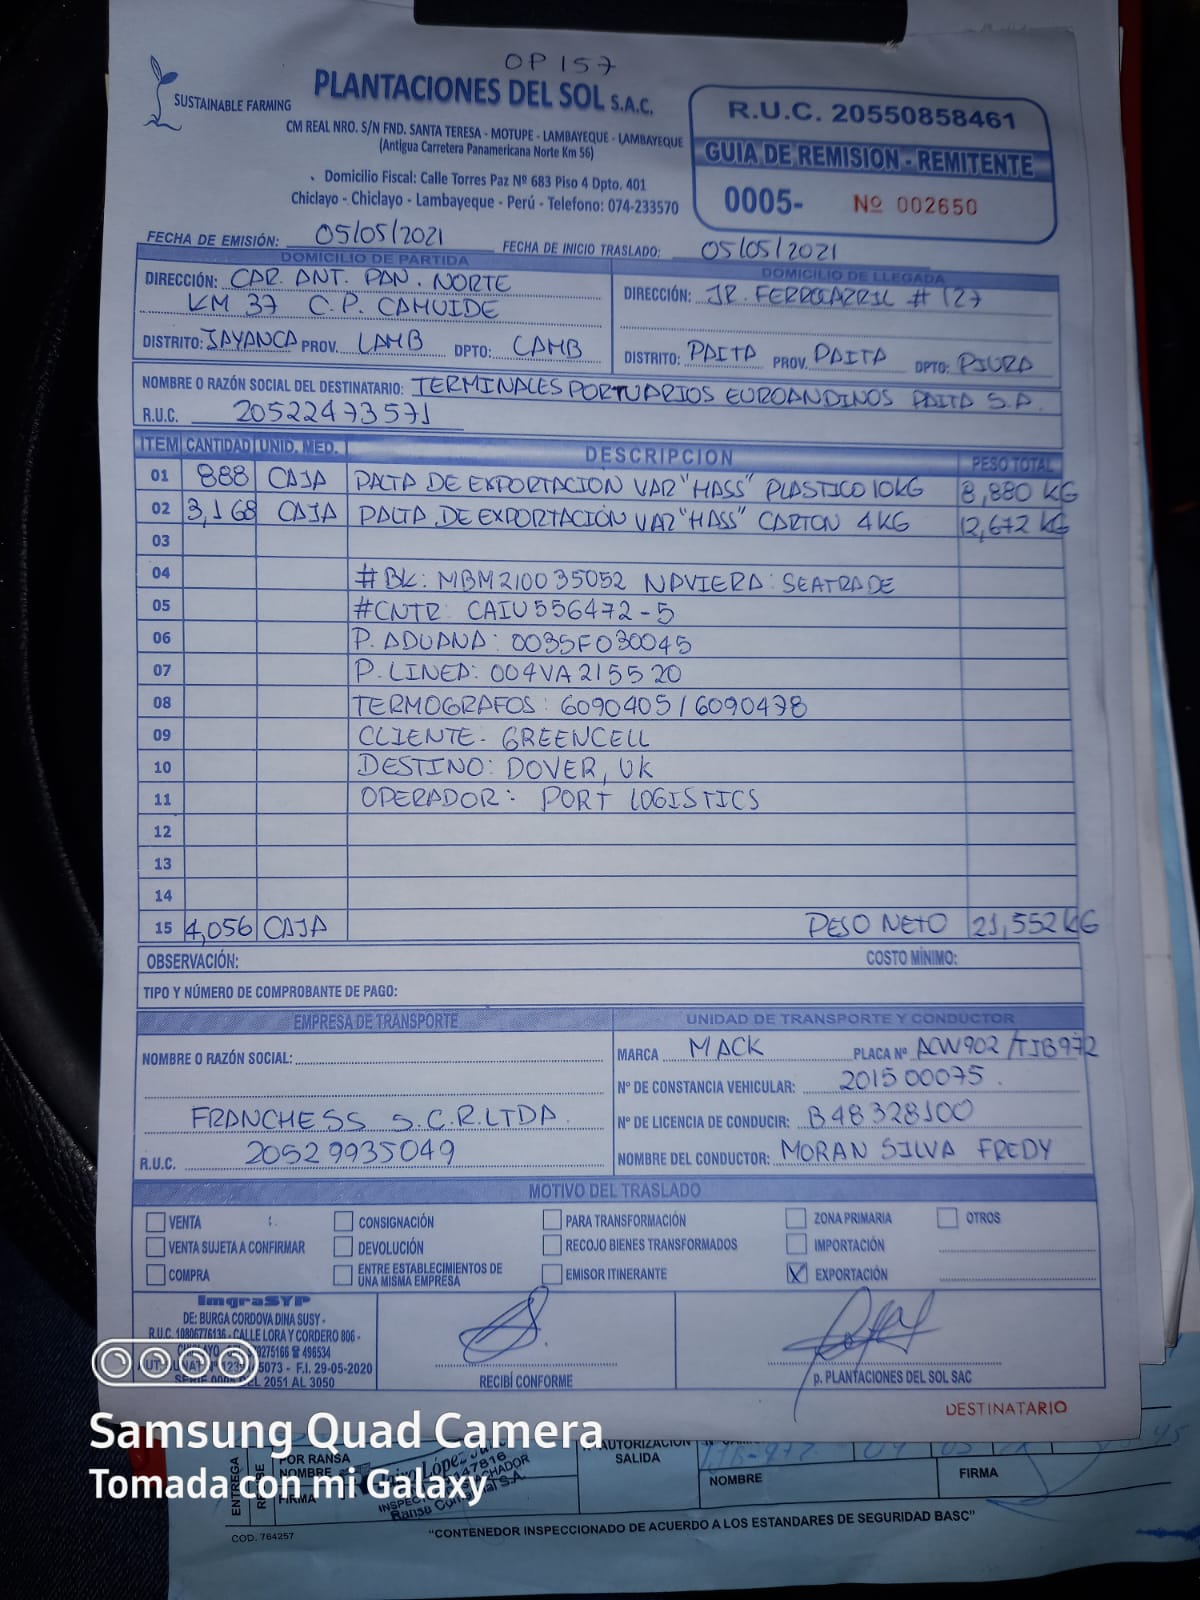 OP 157
SUSTAINABLE FARMING
PLANTACIONES DEL SOL S.A.C.
CM REAL NRO. S/N FND. SANTA TERESA - MOTUPE - LAMBAYEQUE - LAMBAYEQUE
(Antigua Carretera Panamericana Norte Km 56)
Domicilio Fiscal: Calle Torres Paz Nº 683 Piso 4 Dpto. 401
Chiclayo - Chiclayo - Lambayeque - Perú - Telefono: 074-233570
R.U.C. 20550858461
GUIA DE REMISION - REMITENTE
0005- Nº 002650
FECHA DE EMISIÓN: 05/05/2021 FECHA DE INICIO TRASLADO: 05/05/2021
DOMICILIO DE PARTIDA
DIRECCIÓN: CAR. ANT. PAN. NORTE
KM 37 C.P. CAHUIDE
DISTRITO: JAYANCA PROV. LAMB DPTO: LAMB
DOMICILIO DE LLEGADA
DIRECCIÓN: JR. FERROCARRIL # 127
DISTRITO: PAITA PROV. PAITA DPTO: PIURA
NOMBRE O RAZÓN SOCIAL DEL DESTINATARIO: TERMINALES PORTUARIOS EUROANDINOS PAITA S.A.
R.U.C. 20522473571
ITEM CANTIDAD UNID. MED. DESCRIPCION PESO TOTAL
01 888 CAJA PALTA DE EXPORTACIÓN VAR "HASS" PLASTICO 10KG 8,880 KG
02 3,168 CAJA PALTA DE EXPORTACIÓN VAR "HASS" CARTON 4KG 12,672 KG
03
04 #BK: MBM210035052 NAVIERA: SEATRADE
05 #CNTR: CAIU556472-5
06 P. ADUANA: 0035F030045
07 P. LINEA: 004VA215520
08 TERMOGRAFOS: 6090405 / 6090478
09 CLIENTE- GREENCELL
10 DESTINO: DOVER, UK
11 OPERADOR: PORT LOGISTICS
12
13
14
15 4,056 CAJA PESO NETO 21,552 KG
OBSERVACIÓN: COSTO MÍNIMO:
TIPO Y NÚMERO DE COMPROBANTE DE PAGO:
EMPRESA DE TRANSPORTE
NOMBRE O RAZÓN SOCIAL:
FRANCHESS S.C.R.LTDA.
R.U.C. 20529935049
UNIDAD DE TRANSPORTE Y CONDUCTOR
MARCA MACK PLACA Nº ACW902 / TJB972
Nº DE CONSTANCIA VEHICULAR: 201500075
Nº DE LICENCIA DE CONDUCIR: B48328100
NOMBRE DEL CONDUCTOR: MORAN SILVA FREDY
MOTIVO DEL TRASLADO
VENTA CONSIGNACIÓN PARA TRANSFORMACIÓN ZONA PRIMARIA OTROS
VENTA SUJETA A CONFIRMAR DEVOLUCIÓN RECOJO BIENES TRANSFORMADOS IMPORTACIÓN
COMPRA ENTRE ESTABLECIMIENTOS DE UNA MISMA EMPRESA EMISOR ITINERANTE X EXPORTACIÓN
ImgraSYP
DE: BURGA CORDOVA DINA SUSY -
R.U.C. 10806776136 - CALLE LORA Y CORDERO 806 -
275166 ☎ 496534
5073 - F.I. 29-05-2020
DEL 2051 AL 3050
RECIBÍ CONFORME
p. PLANTACIONES DEL SOL SAC
DESTINATARIO
Samsung Quad Camera
Tomada con mi Galaxy
ENTREGA
POR RANSA
NOMBRE
FIRMA
Ransa Comercial S.A.
AUTORIZACION
SALIDA
NOMBRE
FIRMA
COD. 764257
"CONTENEDOR INSPECCIONADO DE ACUERDO A LOS ESTANDARES DE SEGURIDAD BASC"